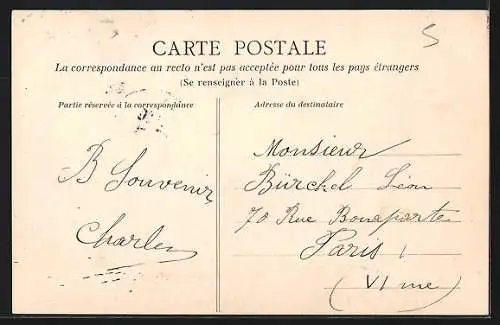 5
CARTE POSTALE
La correspondance au recto n'est pas acceptée pour tous les pays étrangers
(Se renseigner à la Poste)
Partie réservée à la correspondance
B Souvenir
Charles
Adresse du destinataire
Monsieur
Bürchel Léon
70 Rue Bonaparte
Paris
(VI me)